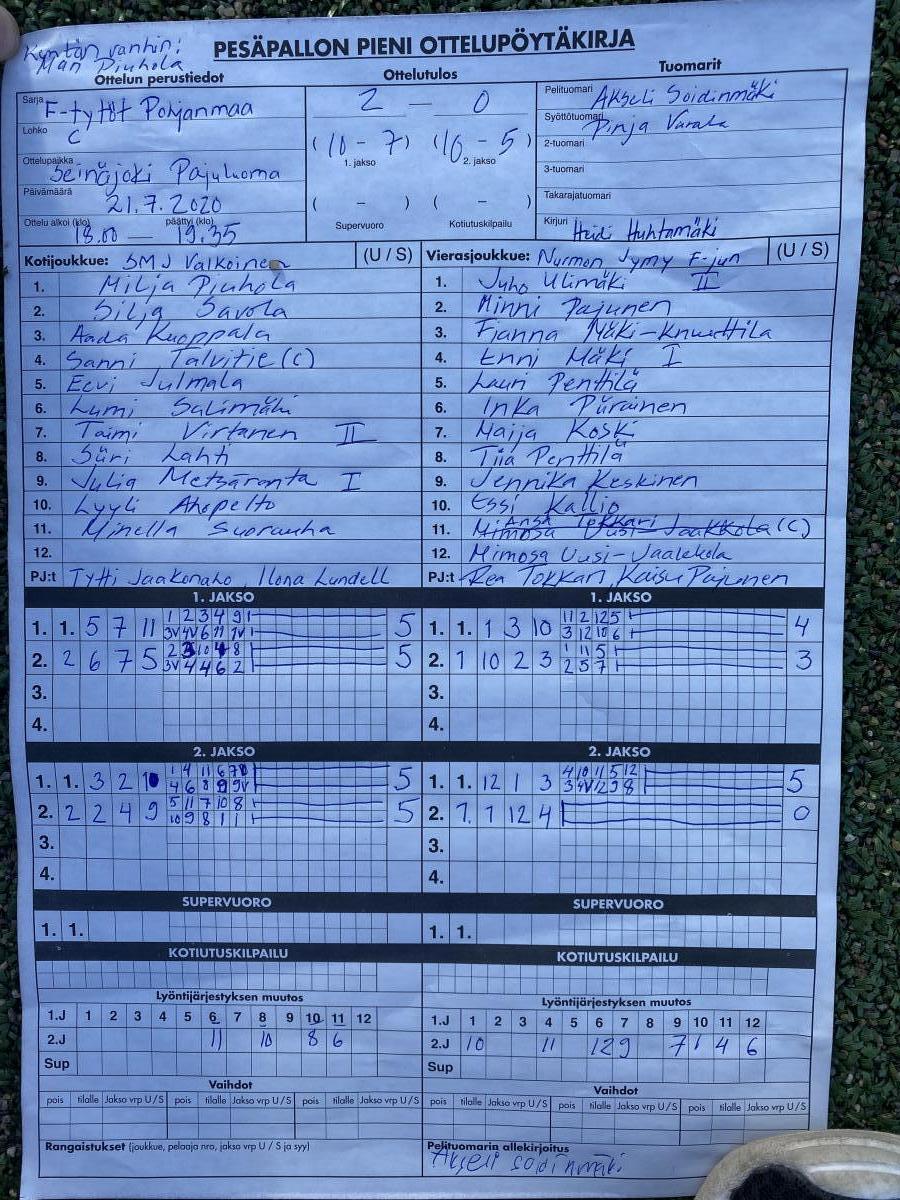 Kentän vanhin:
PESÄPALLON PIENI OTTELUPÖYTÄKIRJA
Ottelun perustiedot
Ottelutulos
Tuomarit
Sarja F-tytöt Pohjanmaa
Lohko C
Ottelupaikka Seinäjoki Pajuluoma
Päivämäärä 21.7.2020
Ottelu alkoi (klo) päättyi (klo)
18.00 — 19.35
2 — 0
(10 - 7) (10 - 5)
1. jakso 2. jakso
( - ) ( - )
Supervuoro Kotiutuskilpailu
Pelituomari Akseli Soidinmäki
Syöttötuomari Pinja Varala
2-tuomari
3-tuomari
Takarajatuomari
Kirjuri Heidi Huhtamäki
Kotijoukkue: SMJ Valkoinen (U / S)
1. Milja Piuhola
2. Silja Savola
3. Aada Kuoppala
4. Sanni Talvitie (C)
5. Eevi Julmala
6. Lumi Salimäki
7. Taimi Virtanen II
8. Siiri Lahti
9. Julia Metsäranta I
10. Lyyli Ahopelto
11. Minella Suorauha
12.
PJ:t Tytti Jaakonaho, Ilona Lundell
Vierasjoukkue: Nurmon Jymy F-jun (U / S)
1. Juho Ulimäki II
2. Minni Pajunen
3. Fianna Mäki-Knuuttila
4. Enni Mäki I
5. Lauri Penttilä
6. Inka Piirainen
7. Maija Koski
8. Tiia Penttilä
9. Jennika Keskinen
10. Essi Kallio
11. Mimosa Uusi-Jaakkola (C)
Ansa Tokkari
12. Mimosa Uusi-Jaakkola
PJ:t Rea Tokkari, Kaisu Pajunen
1. JAKSO
1. 1. 5 7 11 1 2 3 4 9 5
3V 4V 6 11 1V
2. 2 6 7 5 2 3 10 4 8 5
3V 4 4 6 2
3.
4.
1. JAKSO
1. 1. 1 3 10 11 2 12 5 4
3 12 10 6
2. 1 10 2 3 1 11 5 3
2 5 7
3.
4.
2. JAKSO
1. 1. 3 2 10 1 4 11 6 7 5
4 6 8 9 9V
2. 2 2 4 9 5 11 7 10 8 5
10 9 8 1 1
3.
4.
2. JAKSO
1. 1. 12 1 3 4 10 11 5 12 5
3 4V 12 9 8
2. 7. 1 12 4 0
3.
4.
SUPERVUORO
1. 1.
SUPERVUORO
1. 1.
KOTIUTUSKILPAILU
KOTIUTUSKILPAILU
Lyöntijärjestyksen muutos
1.J 1 2 3 4 5 6 7 8 9 10 11 12
2.J 11 10 8 6
Sup
Lyöntijärjestyksen muutos
1.J 1 2 3 4 5 6 7 8 9 10 11 12
2.J 10 11 12 9 7 1 4 6
Sup
Vaihdot
pois tilalle Jakso vrp U / S pois tilalle Jakso vrp U / S pois tilalle Jakso vrp U / S
Vaihdot
pois tilalle Jakso vrp U / S pois tilalle Jakso vrp U / S pois tilalle Jakso vrp U / S
Rangaistukset (joukkue, pelaaja nro, jakso vrp U / S ja syy)
Pelituomarin allekirjoitus
Akseli Soidinmäki